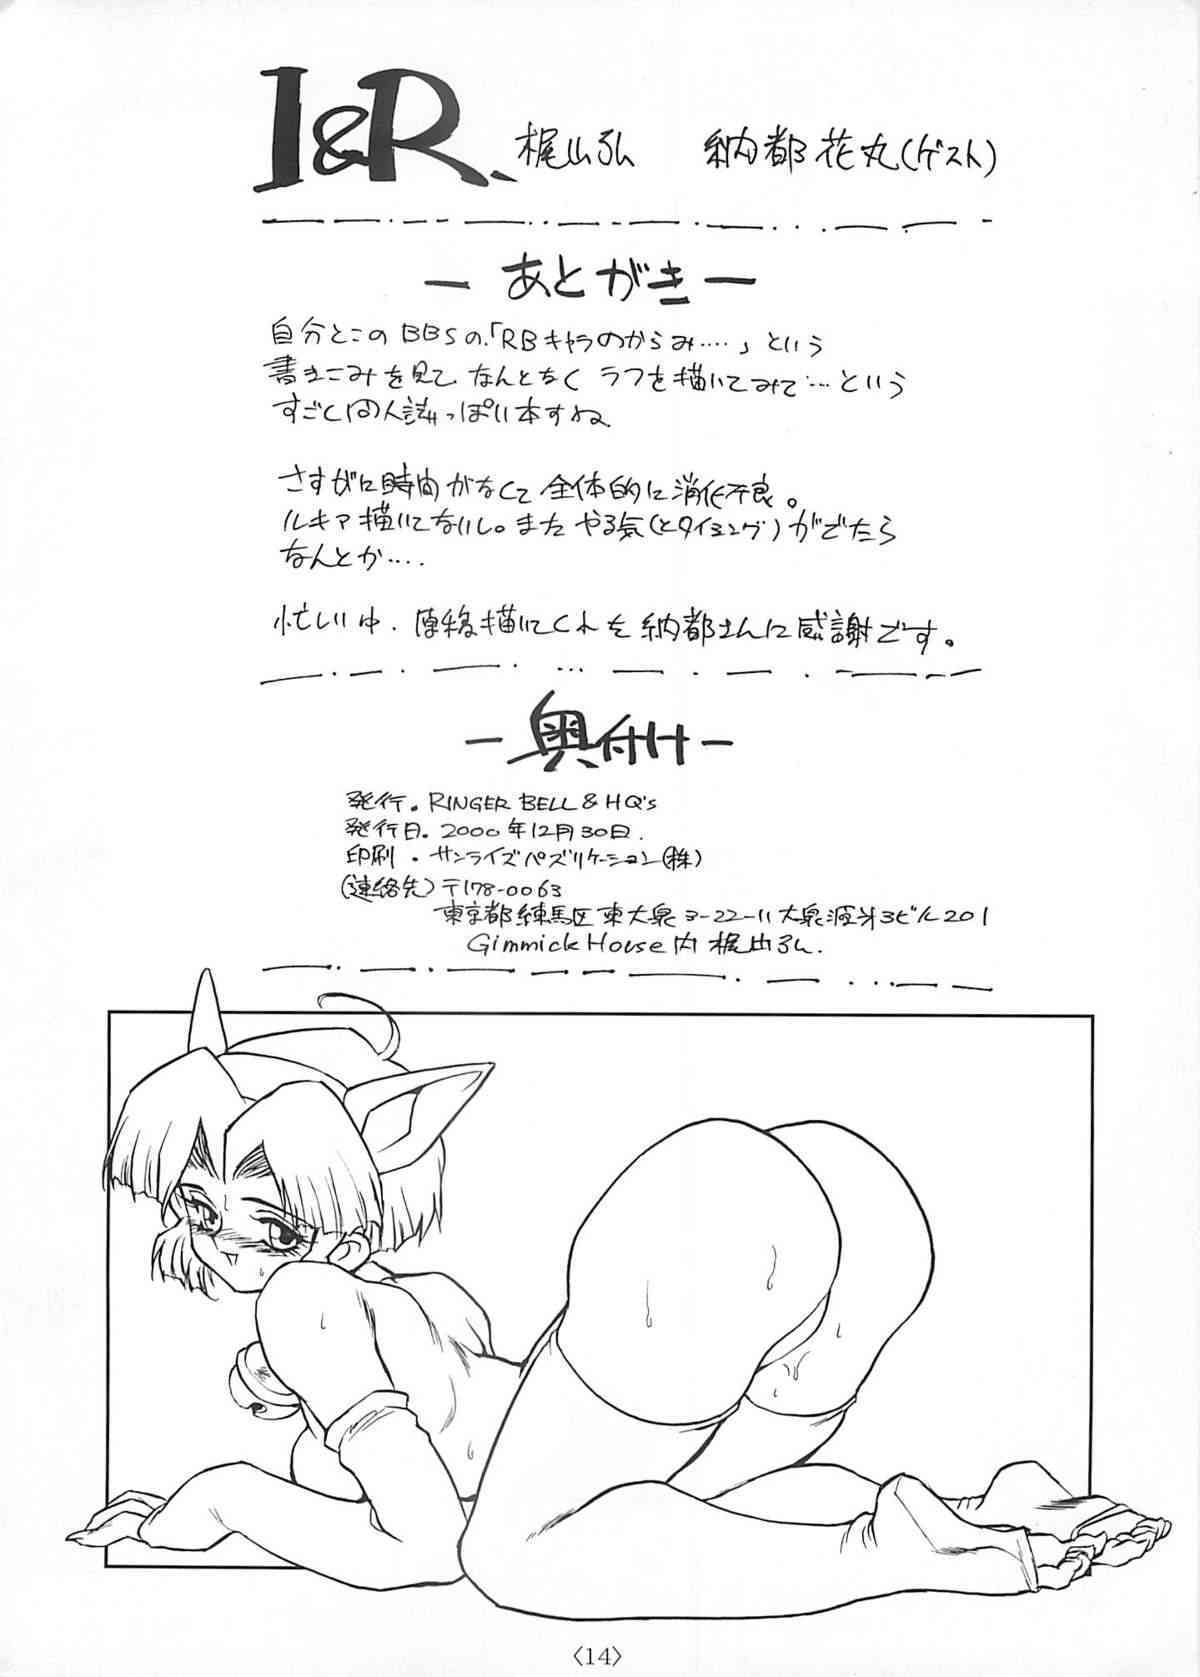 I&R、 梶山弘 納都花丸(ゲスト)
ーあとがきー
自分とこのBBSの「RBキャラのからみ‥‥」という
書きこみを見て、なんとなくラフを描いてみて‥‥という
すごく同人誌っぽい本すね
さすがに時間がなくて全体的に消化不良。
ルキア描いてないし。またやる気(とタイミング)がでたら
なんとか‥‥
忙しい中、原稿描いてくれた納都さんに感謝です。
ー奥付けー
発行。RINGER BELL & HQ's
発行日。2000年12月30日.
印刷・サンライズパブリケーション(株)
(連絡先)〒178-0063
東京都練馬区東大泉3-22-11大泉 第3ビル201
Gimmick House内 梶山弘.
〈14〉